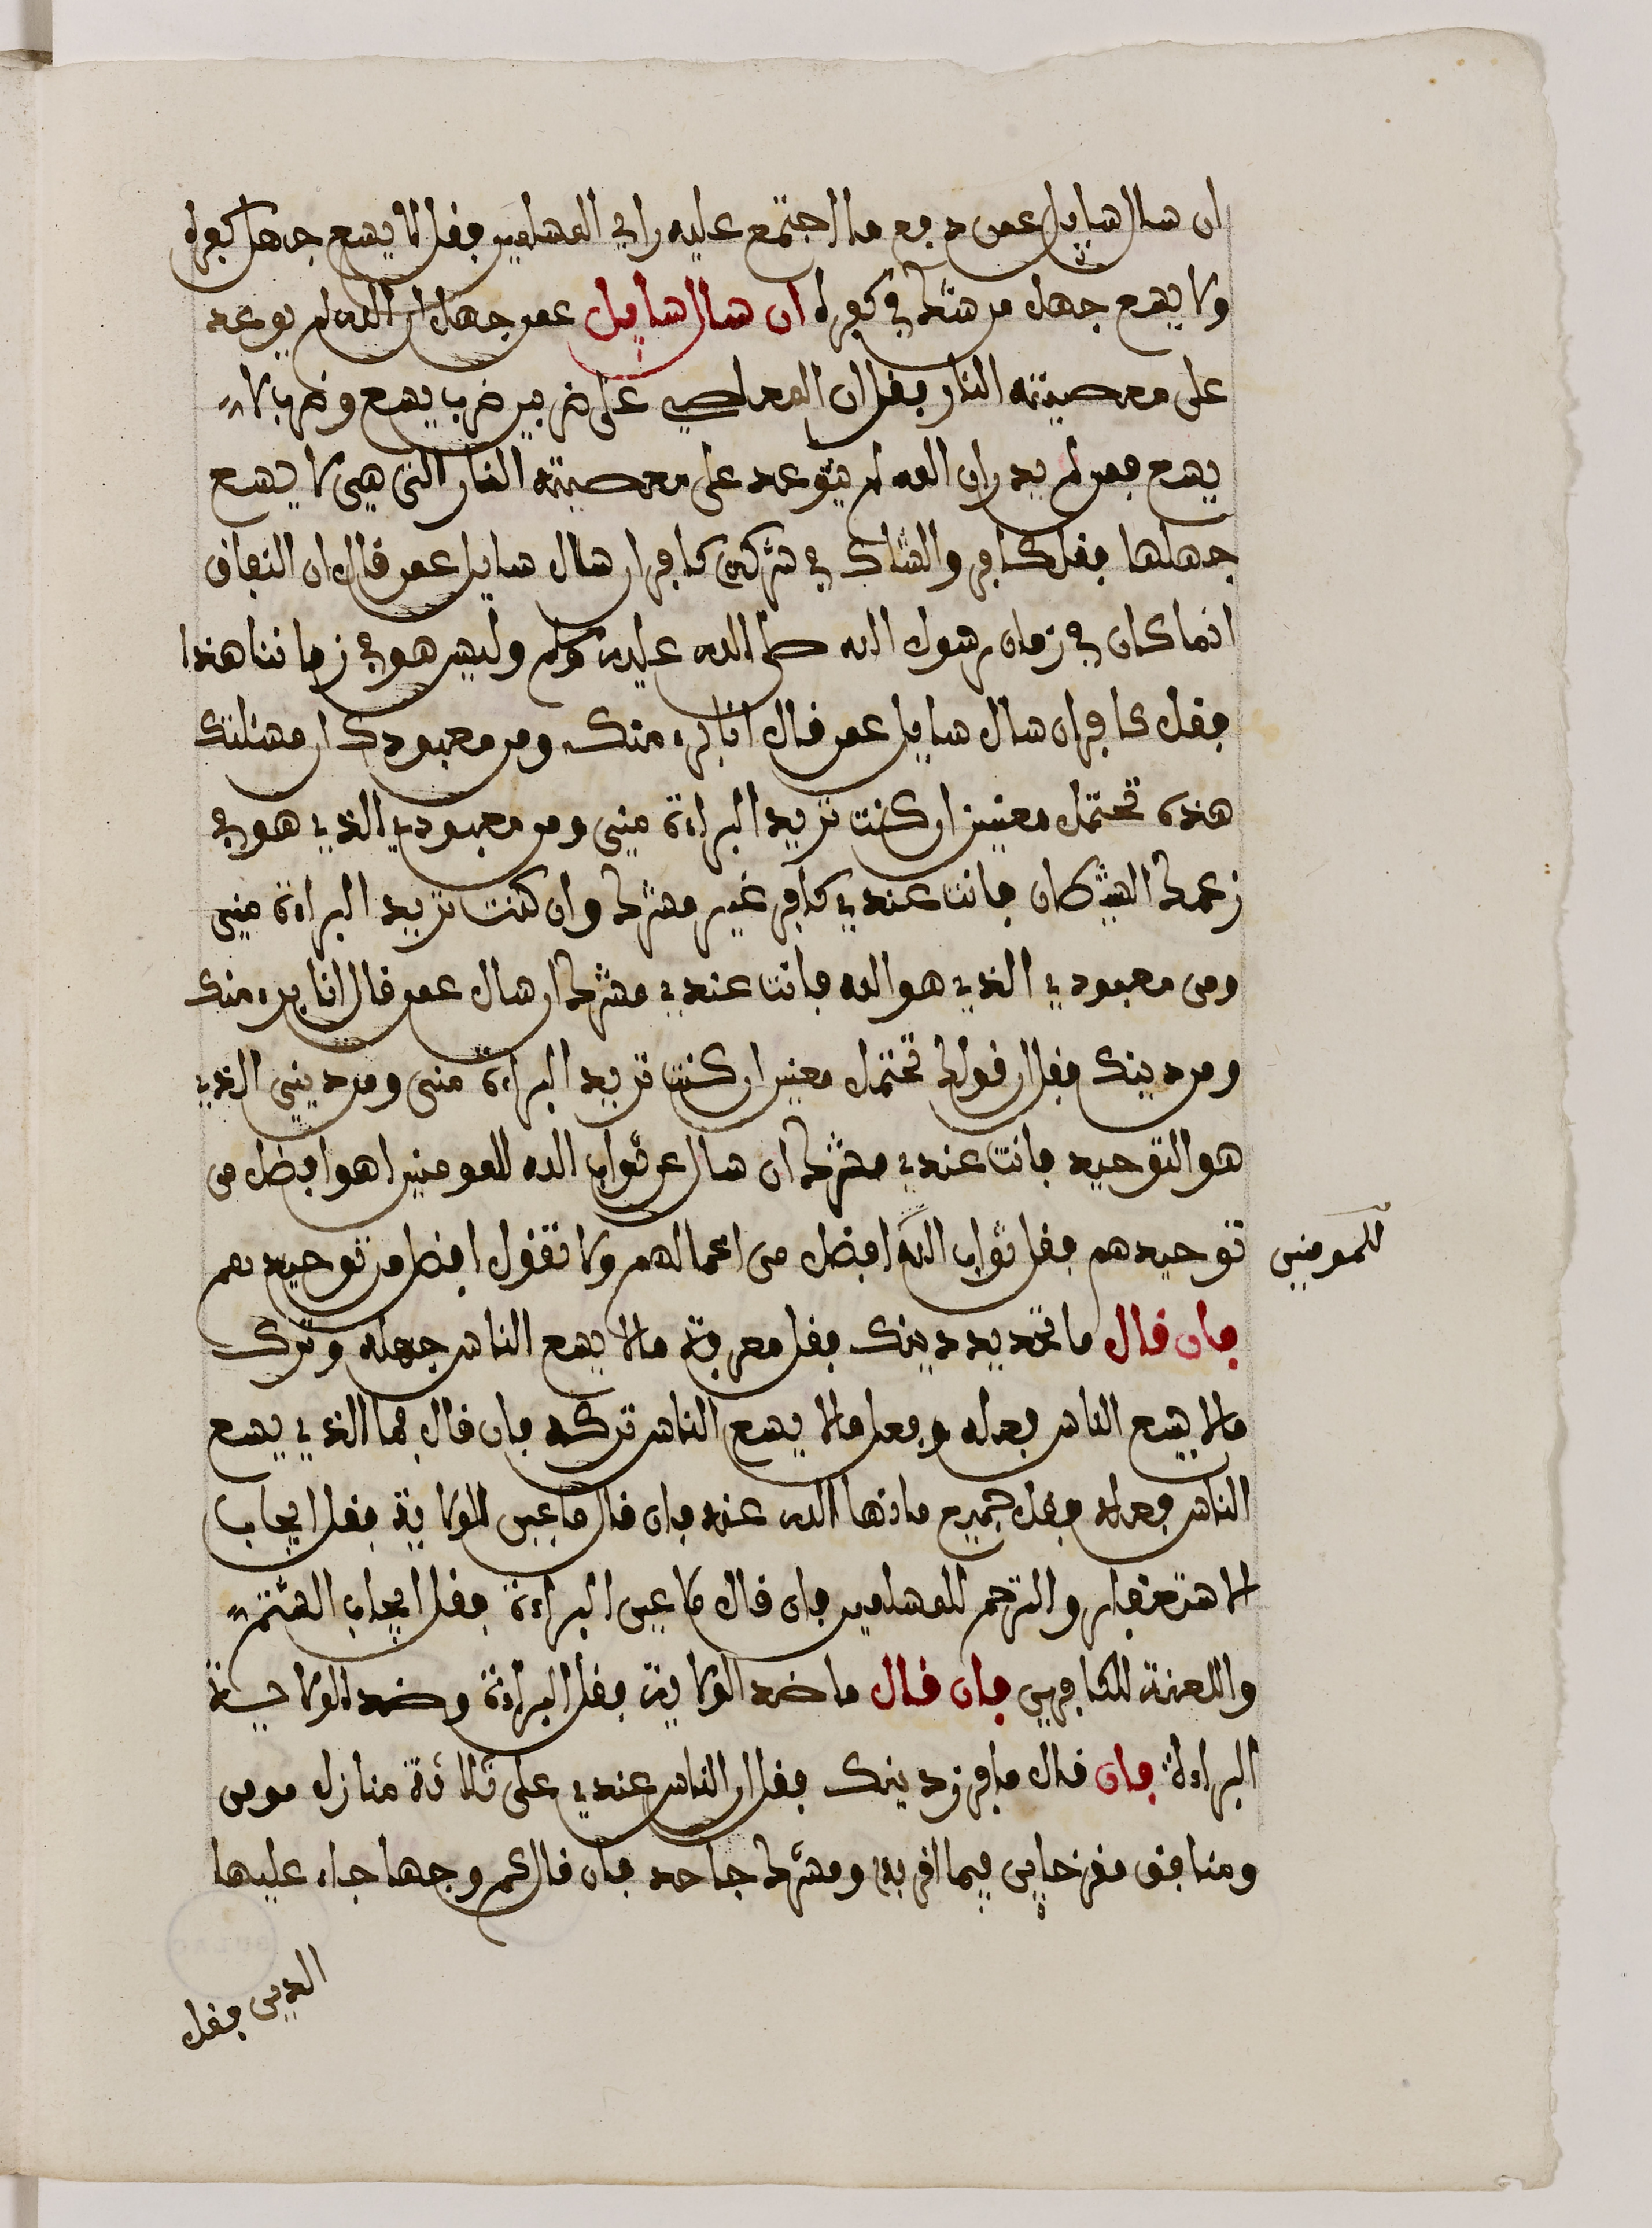 ان سال سايل عمن دفع ما اجتمع عليه راي المسلمين فقل لا يسع جهل كفره
ولا يسع جهل من شك في كفره ان سال سايل عمن جهل ان الله لم يوعد
على معصيته النار فقل ان المعاصي على ضربين ضرب يسع وضرب لا
يسع فمن لم يدر ان الله لم يتوعد على معصيته النار التي هي لا يسع
جهلها فقل كافر والشاك في شركه كافر ان سال سايل عمن قال ان النفاق
انما كان في زمان رسول الله صلى الله عليه وسلم وليس هو في زماننا هذا
فقل كافر ان سال سايل عمن قال انا بريء منك ومن معبودك ان مسئلتك
هذه تحتمل معنيين ان كنت تريد البراءة مني ومن معبودي الذي هو في
زعمك الشيطان فانت عندي كافر غير مشرك وان كنت تريد البراءة مني
ومن معبودي الذي هو الله فانت عندي مشرك ان سال عمن قال انا بريء منك
ومن دينك فقل ان قولك تحتمل معنيين ان كنت تريد البراءة مني ومن ديني الذي
هو التوحيد فانت عندي مشرك ان سال عن ثواب الله للمومنين اهو افضل من
توحيدهم فقل ثواب الله افضل من اعمالهم ولا تقول افضل من توحيدهم
للمومنين
فان قال ما تحديد دينك فقل معرفة ما لا يسع الناس جهله وترك
ما لا يسع الناس فعله وفعل ما لا يسع الناس تركه فان قال فما الذي يسع
الناس فعله فقل جميع ما نها الله عنه فان قال ما عين الولاية فقل ايجاب
الاستغفار والترحم للمسلمين فان قال ما عين البراءة فقل ايجاب الشتم
واللعنة للكافرين فان قال ما ضد الولاية فقل البراءة وضد الولاية
البراءة فان قال ما فرز دينك فقل ان الناس عندي على ثلاثة منازل مومن
ومنافق مقر خاين فيما اقر به ومشرك جاحد فان قال كم وجها جاء عليها
الدين فقل